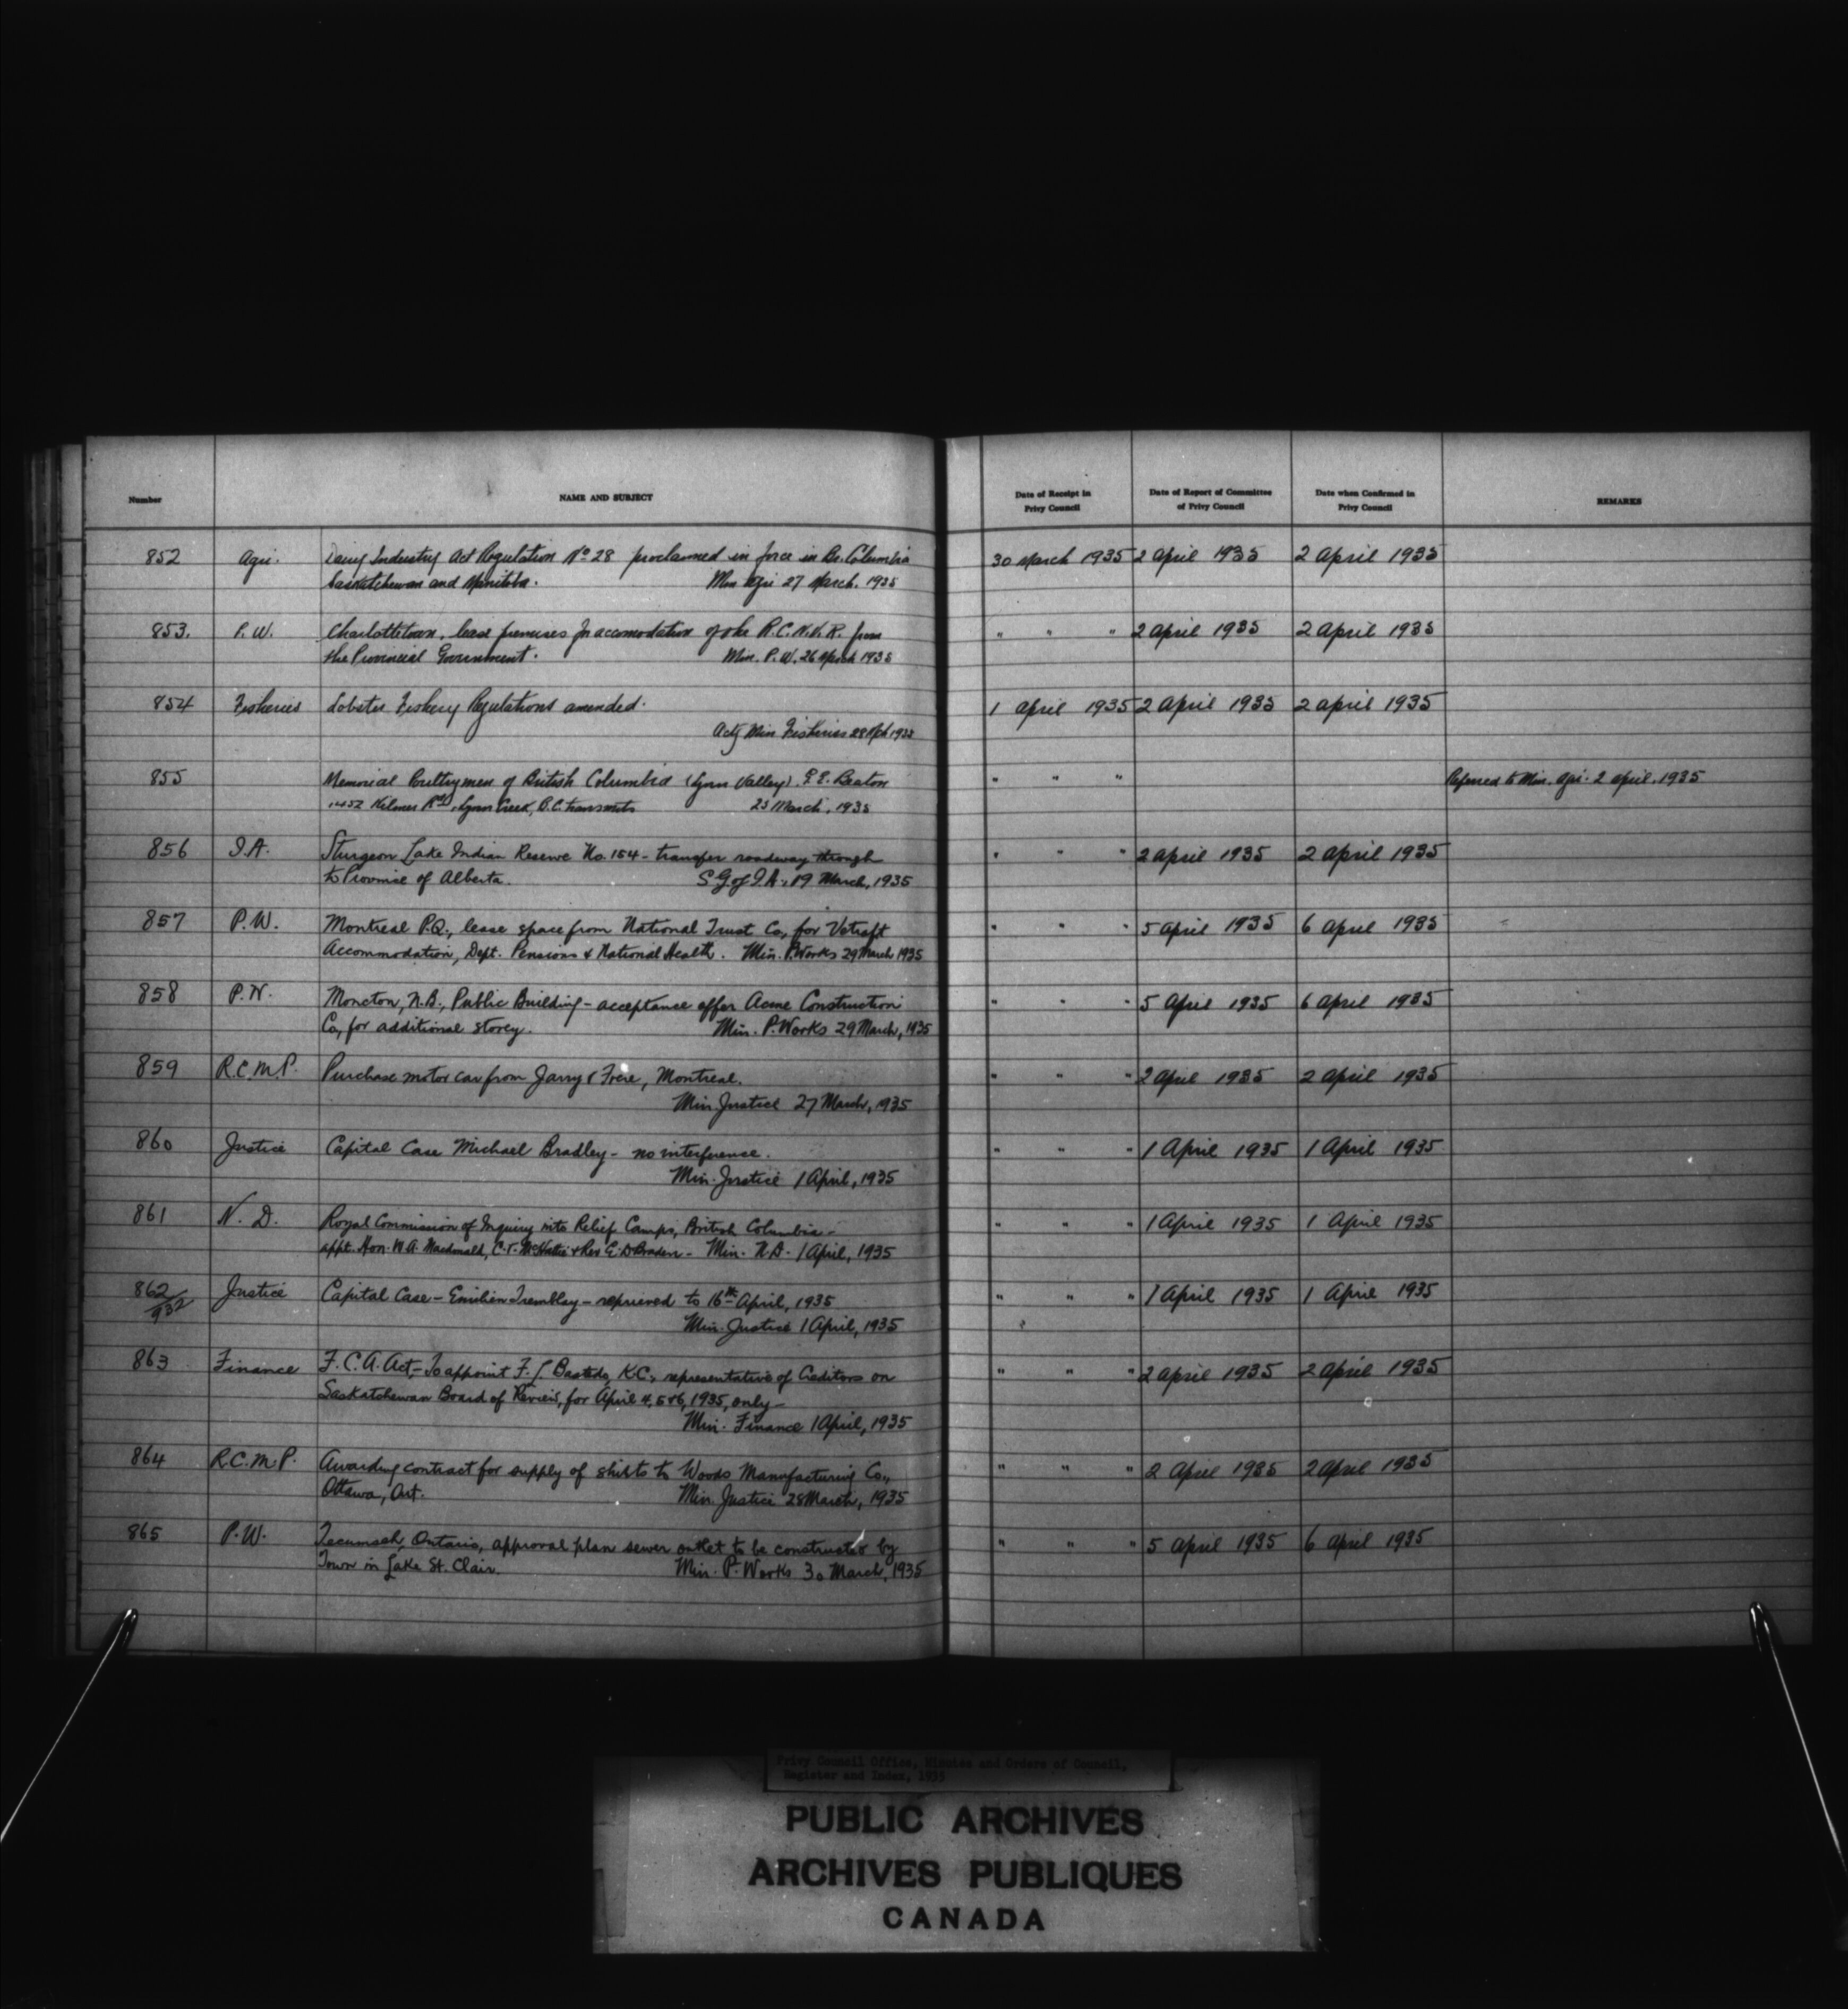 Number NAME AND SUBJECT Date of Receipt in Privy Council Date of Report of Committee of Privy Council Date when Confirmed in Privy Council REMARKS
852 Agri. Dairy Industry Act Regulation No 28 proclaimed in force in Br. Columbia 30 March 1935 2 April 1935 2 April 1935
Saskatchewan and Manitoba. Min Agri 27 March. 1935
853. P.W. Charlottetown, lease premises for accomodation of the R.C.N.V.R. from " " " 2 April 1935 2 April 1935
the Provincial Government. Min. P.W. 26 March 1935
854 Fisheries Lobster Fishery Regulations amended. 1 April 1935 2 April 1935 2 April 1935
Actg Min Fisheries 28
855 Memorial Poultrymen of British Columbia (Lynn Valley). E.E. Beaton " " " Referred to Min. Agri. 2 April. 1935
1452 Kilmer Rd, Lynn Creek, B.C. transmits 23 March, 1935
856 I.A. Sturgeon Lake Indian Reserve No. 154 - transfer roadway through " " " 2 April 1935 2 April 1935
to Province of Alberta. S.G. of I.A., 19 March, 1935
857 P.W. Montreal P.Q., lease space from National Trust Co, for Vetraft " " " 5 April 1935 6 April 1935
Accommodation, Dept. Pensions & National Health. Min. P. Works 29 March 1935
858 P.W. Moncton, N.B., Public Building - acceptance offer Acme Construction " " " 5 April 1935 6 April 1935
Co, for additional storey. Min. P. Works 29 March, 1935
859 R.C.M.P. Purchase motor car from Jarry & Frere, Montreal. " " " 2 April 1935 2 April 1935
Min Justice 27 March, 1935
860 Justice Capital Case Michael Bradley - no interference. " " " 1 April 1935 1 April 1935
Min. Justice 1 April, 1935
861 N.D. Royal Commission of Inquiry into Relief Camps, British Columbia - " " " 1 April 1935 1 April 1935
appt. Hon. W.A. Macdonald, C.T. McHattie & Rev E.D. Braden - Min. N.D. 1 April, 1935
862/932 Justice Capital Case - Emilien Tremblay - reprieved to 16th April, 1935 " " " 1 April 1935 1 April 1935
Min. Justice 1 April, 1935
863 Finance F.C.A. Act, - To appoint F.L. Bastedo, K.C., representative of Creditors on " " " 2 April 1935 2 April 1935
Saskatchewan Board of Review, for April 4, 5 & 6, 1935, only -
Min. Finance 1 April, 1935
864 R.C.M.P. Awarding contract for supply of shirts to Woods Manufacturing Co., " " " 2 April 1935 2 April 1935
Ottawa, Ont. Min. Justice 28 March, 1935
865 P.W. Tecumseh, Ontario, approval plan sewer outlet to be constructed by " " " 5 April 1935 6 April 1935
Town in Lake St. Clair. Min. P. Works 30 March, 1935
Privy Council Office, Minutes and Orders of Council,
Register and Index, 1935
PUBLIC ARCHIVES
ARCHIVES PUBLIQUES
CANADA